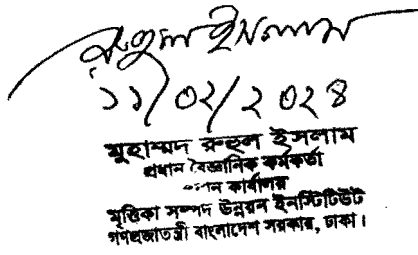 রুহুল ইসলাম
১১/০২/২০২৪
মুহাম্মদ রুহুল ইসলাম
প্রধান বৈজ্ঞানিক কর্মকর্তা
কার্যালয়
মৃত্তিকা সম্পদ উন্নয়ন ইনস্টিটিউট
গণপ্রজাতন্ত্রী বাংলাদেশ সরকার, ঢাকা।